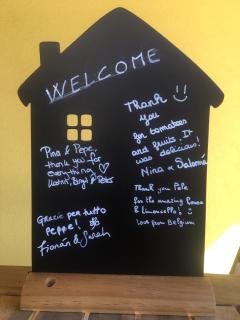 WELCOME
Pina & Pepe,
thank you for
everything
& Peter
Thank
you
for tomatoes
and fruits. It
was delicious!
Nina &
Thank you Pepe
for the amazing
& limoncello!
love from Belgium
Grazie per tutto
Peppe!
Fionán & Sarah